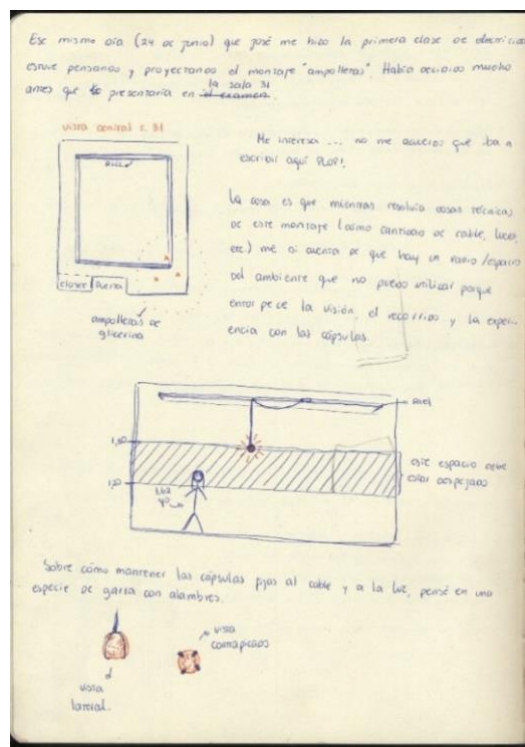 Ese mismo día (24 de junio) que José me hizo la primera clase de electricidad
estuve pensando y proyectando el montaje "ampolletas". Había decidido mucho
la sala 31
antes que lo presentaría en el examen.
vista cenital s. 31
RIEL
closet puerta
ampolletas de
glicerina
Me interesa ... no me acuerdo que iba a
escribir aquí PLOP!
La cosa es que mientras resolvía cosas técnicas
de este montaje (como cantidad de cable, luces,
etc.) me di cuenta de que hay un radio/espacio
del ambiente que no puedo utilizar porque
entorpece la visión, el recorrido y la experi-
encia con las cápsulas.
riel
1,80
1,20
este espacio debe
estar despejado
yo
Sobre cómo mantener las cápsulas fijas al cable y a la luz, pensé en una
especie de garra con alambres.
vista
lateral.
vista
contrapicado